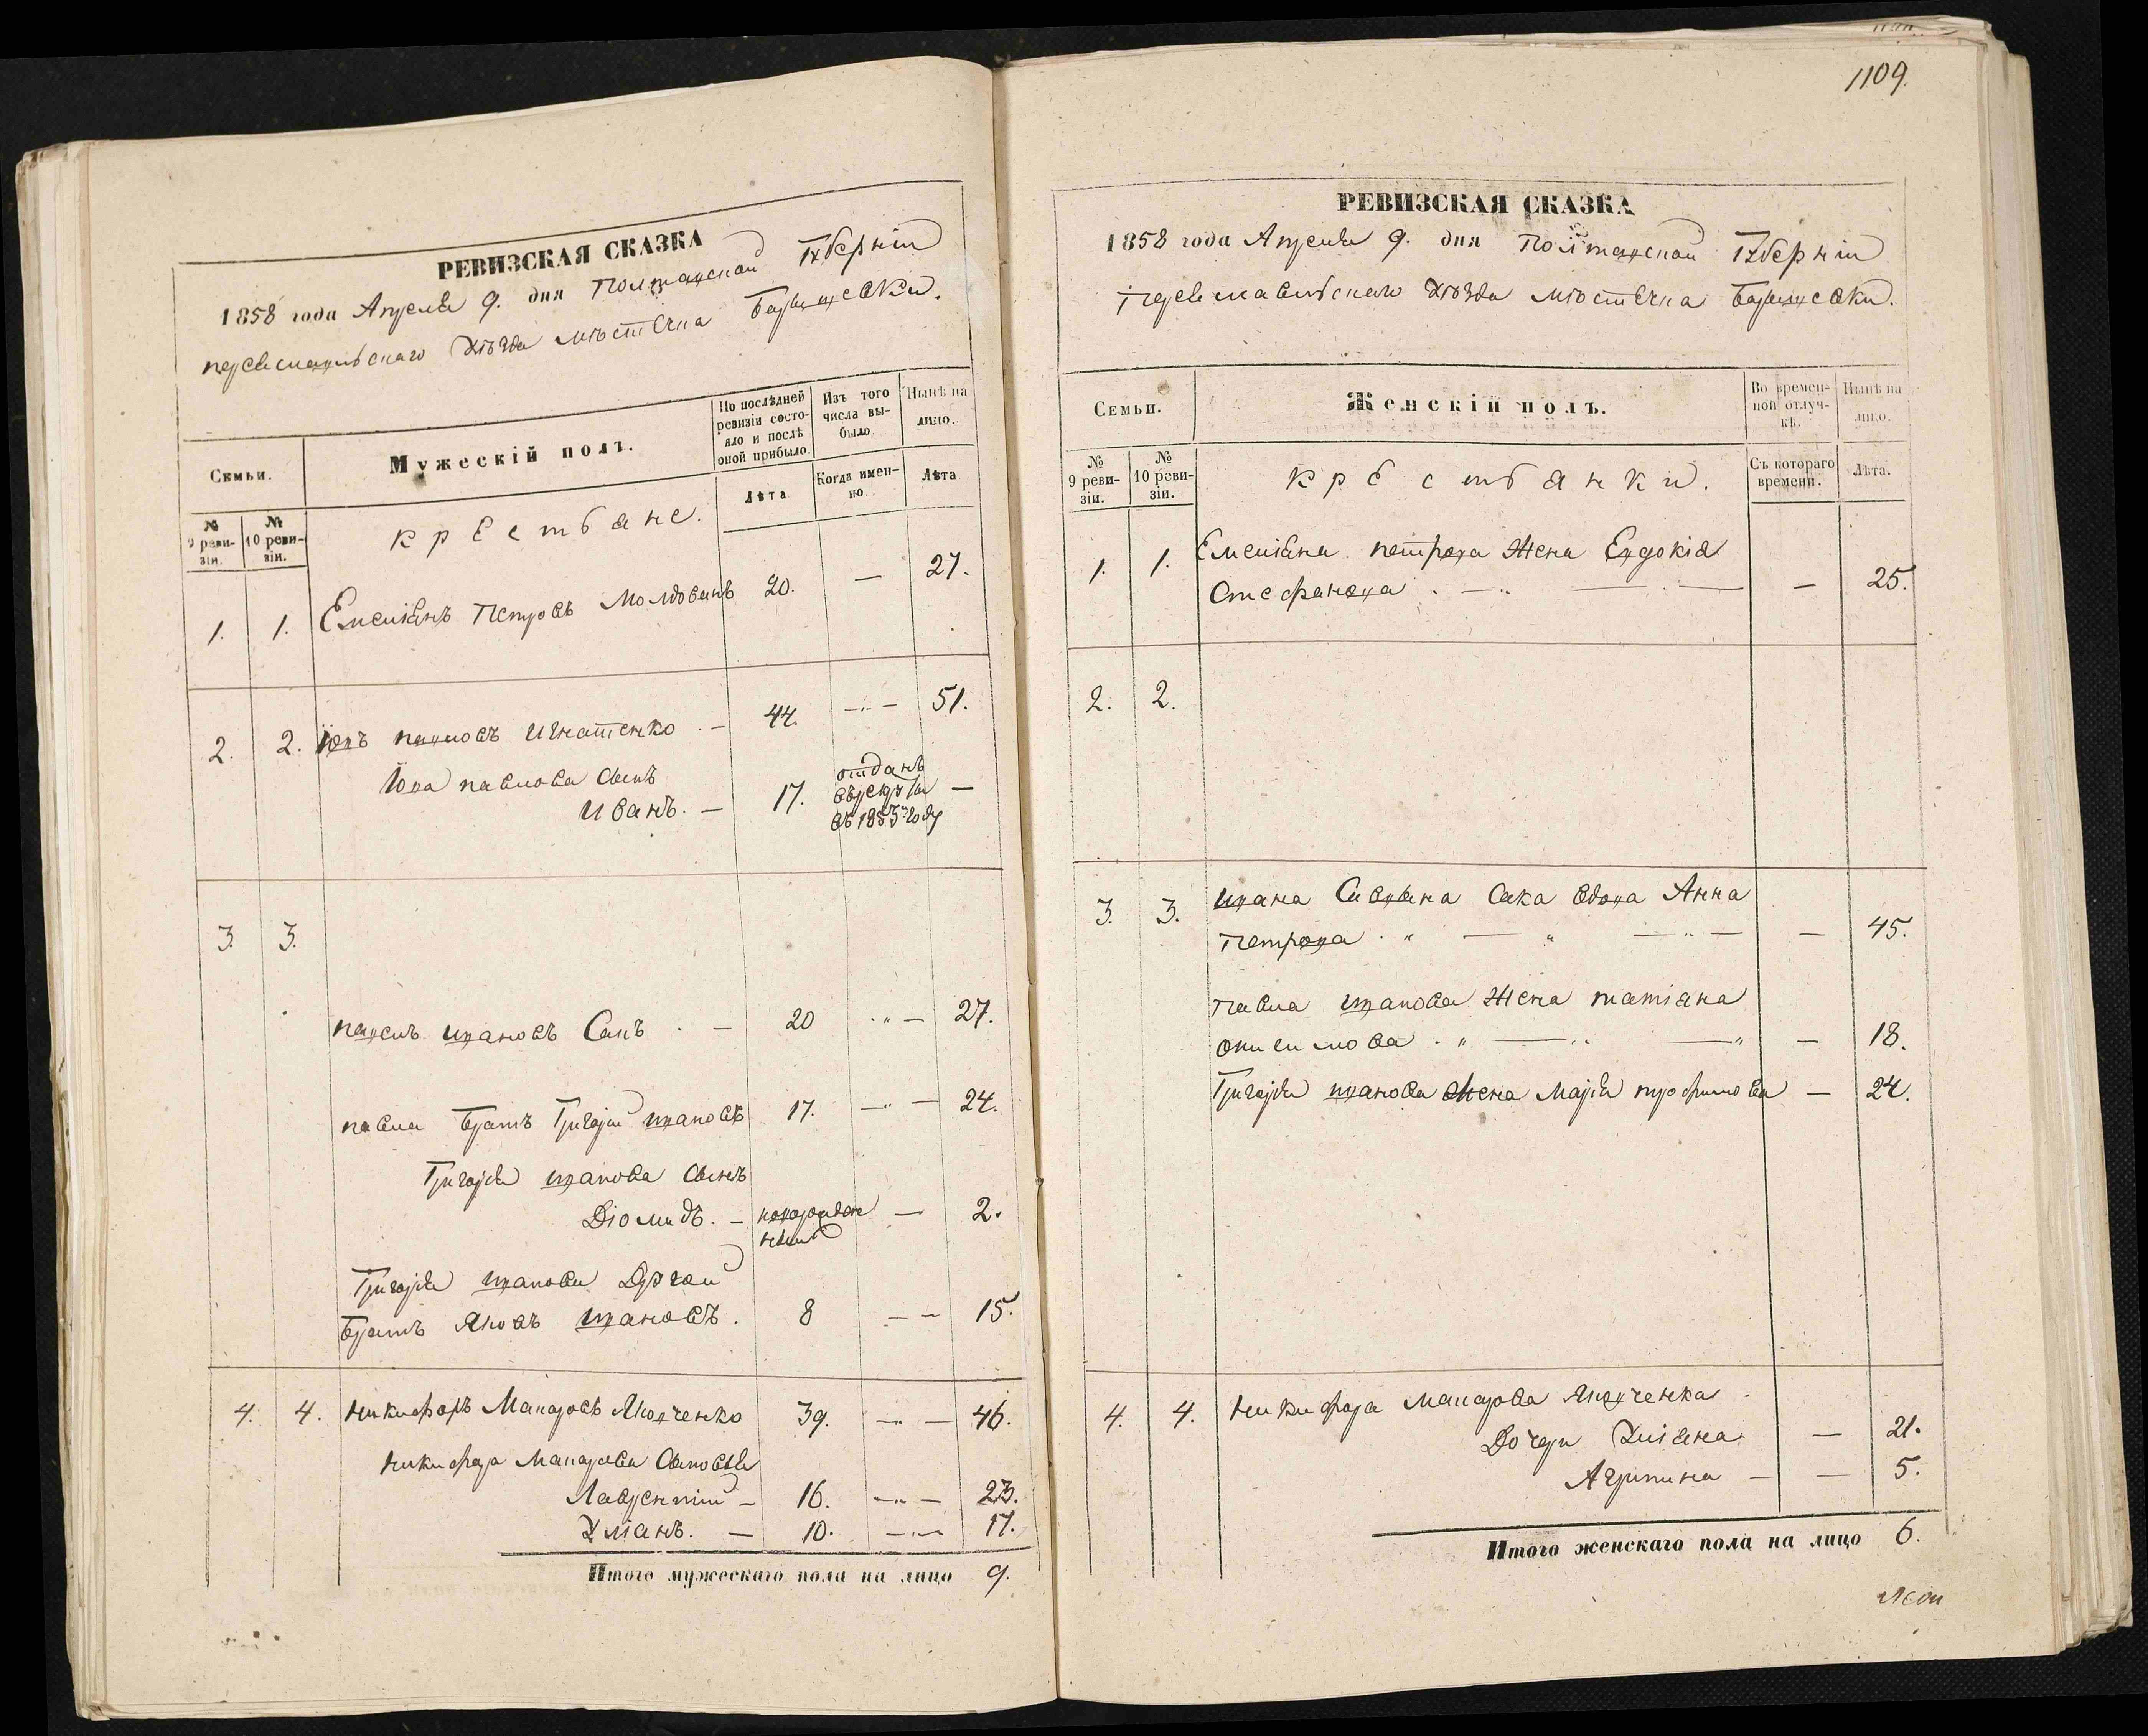 РЕВИЗСКАЯ СКАЗКА
1858 года Апреля 9. дня Полтавской Губерніи
переяславльскаго Уѣзда мѣстечка Барышевки.
Семьи.
Мужескій полъ.
По послѣдней ревизіи состояло и послѣ оной прибыло.
Изъ того числа выбыло.
Нынѣ на лицо.
№ 9 ревизіи.
№ 10 ревизіи.
крестьяне.
Лѣта
Когда именно.
Лѣта
1. 1. Емеліянъ Петровъ Молдованъ 20. — 27.
2. 2. Іовъ павловъ Игнатенко . — 44. —"— 51.
Іова павлова сынъ
Иванъ. — 17. отданъ въ рекруты въ 1855 году —
3. 3.
павелъ ивановъ Сакъ . — 20 "— 27.
павла братъ Григорій ивановъ 17. —"— 24.
Григорія иванова сынъ
Діомидъ. — новорожденный — 2.
Григорія иванова другой
братъ Яковъ ивановъ. 8 — — 15.
4. 4. Никифоръ Макаровъ Яковченко 39. —"— 46.
Никифора Макарова сыновья
Лаврентій — 16. —"— 23.
Уліанъ. — 10. —"— 17.
Итого мужескаго пола на лицо 9.
1109.
РЕВИЗСКАЯ СКАЗКА
1858 года Апреля 9. дня Полтавской Губерніи
переяславльскаго Уѣзда мѣстечка Барышевки.
Семьи.
Женскій полъ.
Во временной отлучкѣ.
Нынѣ на лицо.
№ 9 ревизіи.
№ 10 ревизіи.
крестьянки.
Съ котораго времени.
Лѣта.
1. 1. Емеліяна петрова жена Евдокія
Стефанова . —"— — — 25.
2. 2.
3. 3. ивана Сака вдова Анна
Петрова . " — " —"— — 45.
Павла иванова жена татіана
онисимова . " — " — " — 18.
Григорія иванова жена Марія трофимова — 24.
4. 4. Никифора Макарова Яковченка
Дочери Уліяна — 21.
Агрипина — — 5.
Итого женскаго пола на лицо 6.